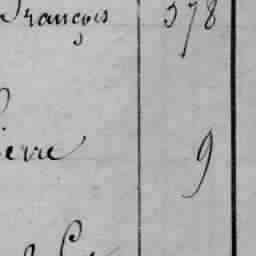 François 378
ierre 9